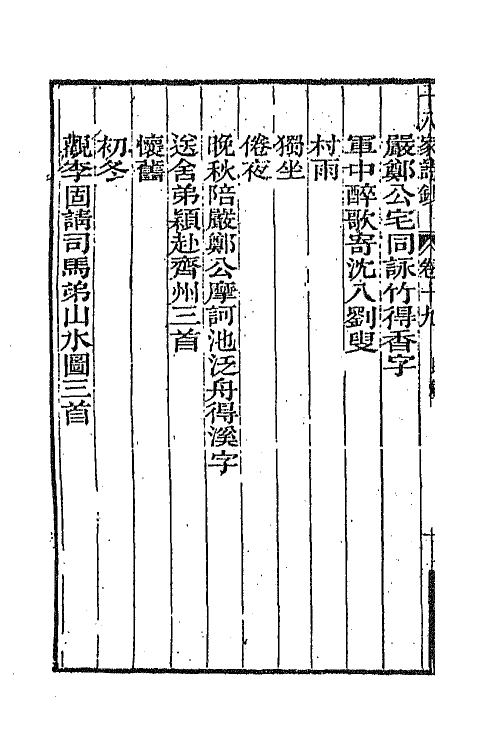 十八家詩鈔 卷十九 目錄 十
嚴鄭公宅同詠竹得香字
軍中醉歌寄沈八劉叟
村雨
獨坐
倦夜
晚秋陪嚴鄭公摩訶池泛舟得溪字
送舍弟穎赴齊州三首
懷舊
初冬
觀李固請司馬弟山水圖三首